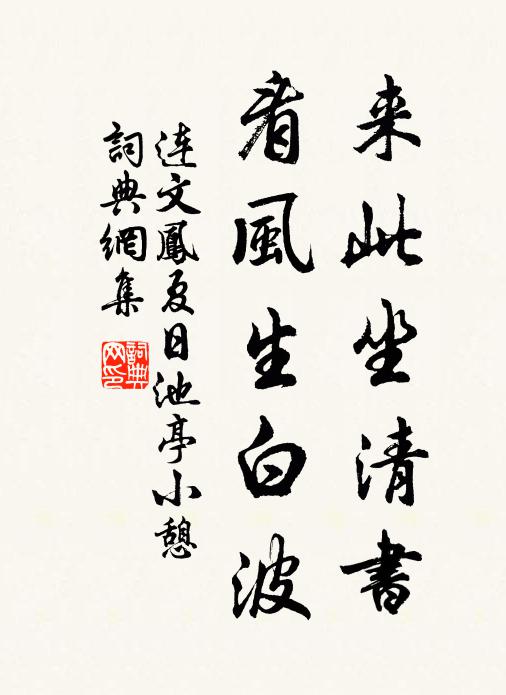 来此坐清書
看風生白波
連文鳳夏日池亭小憩
詞典網集
詞典网印